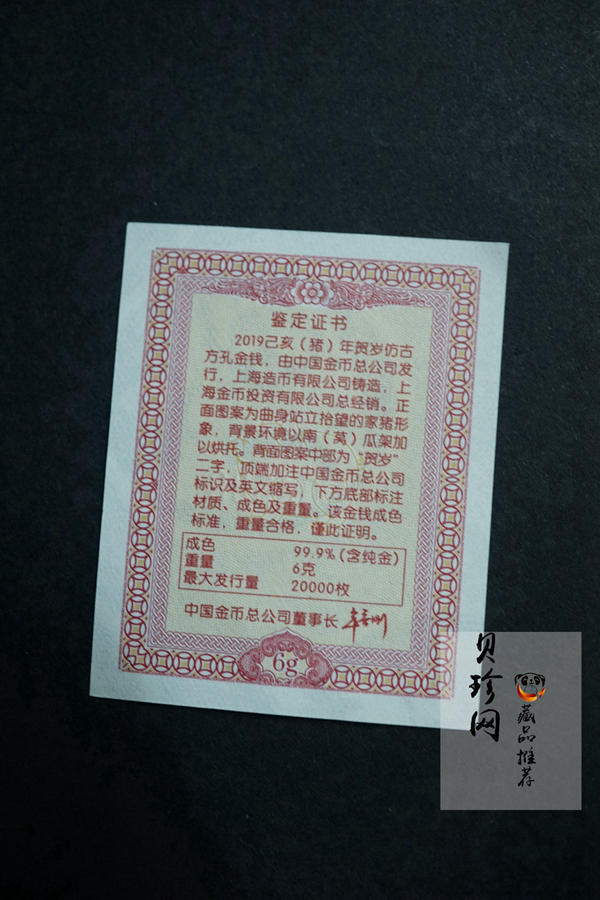 鉴定证书
2019己亥（猪）年贺岁仿古
方孔金钱，由中国金币总公司发
行，上海造币有限公司铸造，上
海金币投资有限公司总经销。正
面图案为曲身站立抬望的家猪形
象，背景环境以南（萵）瓜架加
以烘托。背面图案中部为“贺岁”
二字，顶端加注中国金币总公司
标识及英文缩写，下方底部标注
材质、成色及重量。该金钱成色
标准，重量合格，谨此证明。
成色 99.9%(含纯金)
重量 6克
最大发行量 20000枚
中国金币总公司董事长
6g
贝珍网
藏品推荐